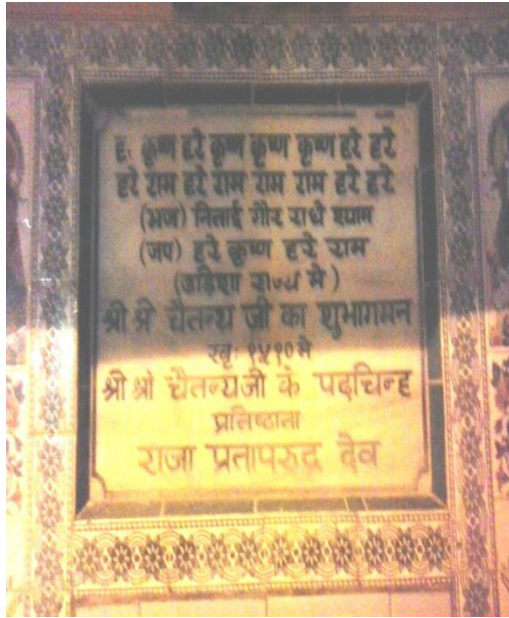 हरे कृष्ण हरे कृष्ण कृष्ण कृष्ण हरे हरे
हरे राम हरे राम राम राम हरे हरे
(भज) निताई गौर राधे श्याम
(जप) हरे कृष्ण हरे राम
(उड़िशा राज्य मे)
श्री श्री चैतन्य जी का शुभागमन
खृः १५१० मे
श्री श्री चैतन्यजी के पदचिन्ह
प्रतिष्ठाता
राजा प्रतापरुद्र देव